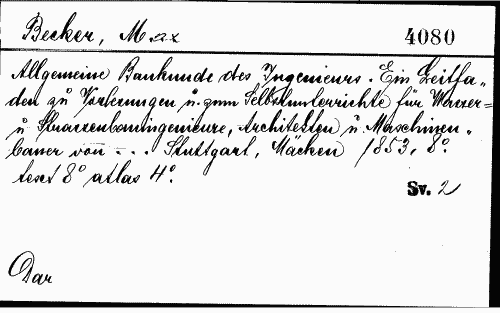 Becker, Max
4080
Allgemeine Baukunde des Ingenieurs. Ein Leitfa-
den zu Vorlesungen u. zum Selbstunterrichte für Wasser-
u Strassenbauingenieure, Architekten u. Maschinen-
bauer von ... Stuttgart, Mäcken 1853, 8°.
text 8° atlas 4°.
Sv. 2
Dar